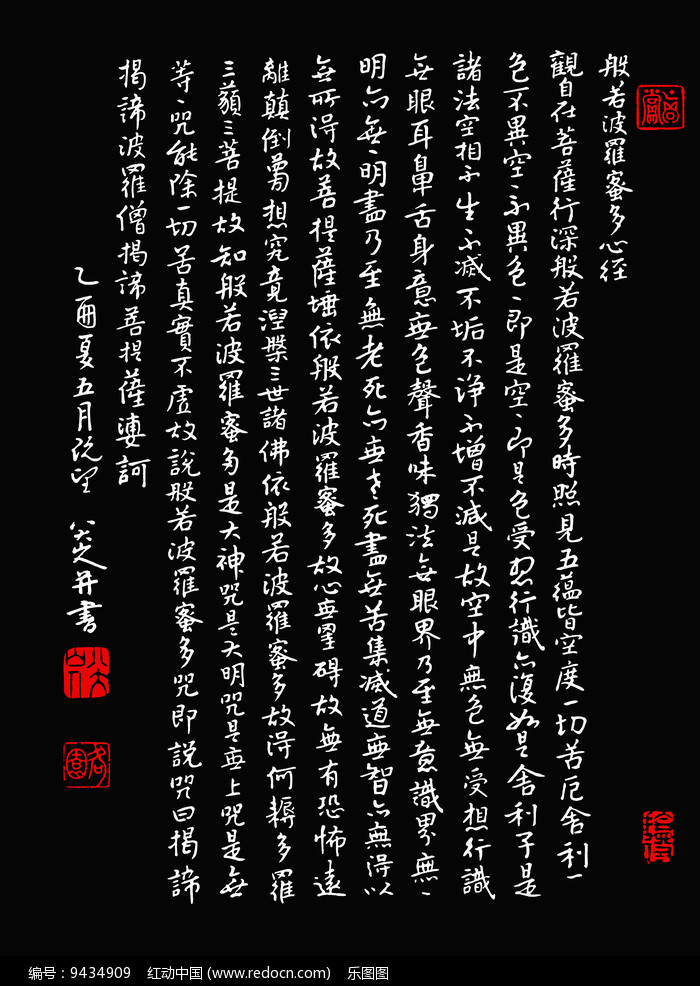 般若波羅蜜多心经
觀自在菩薩行深般若波羅蜜多時照見五蕴皆空度一切苦厄舍利一
色不異空、不異色、即是空、即是色受想行識亦復如是舍利子是
諸法空相不生不减不垢不浄不增不减是故空中無色無受想行識
無眼耳鼻舌身意無色聲香味獨法無眼界乃至無意識界無、
明亦無、明盡乃至無老死亦無老死盡無苦集减道無智亦無得以
無所得故菩提薩埵依般若波羅蜜多故心無罣碍故無有恐怖遠
離顛倒夢想究竟涅槃三世諸佛依般若波羅蜜多故得何耨多羅
三藐三菩提故知般若波羅蜜多是大神咒是大明咒是無上咒是無
等、咒能除一切苦真實不虚故說般若波羅蜜多咒即説咒曰揭諦
揭諦波羅僧揭諦菩提薩婆訶
乙酉夏五月既望 八大山人并書
编号：9434909 红动中国 (www.redocn.com) 乐图图